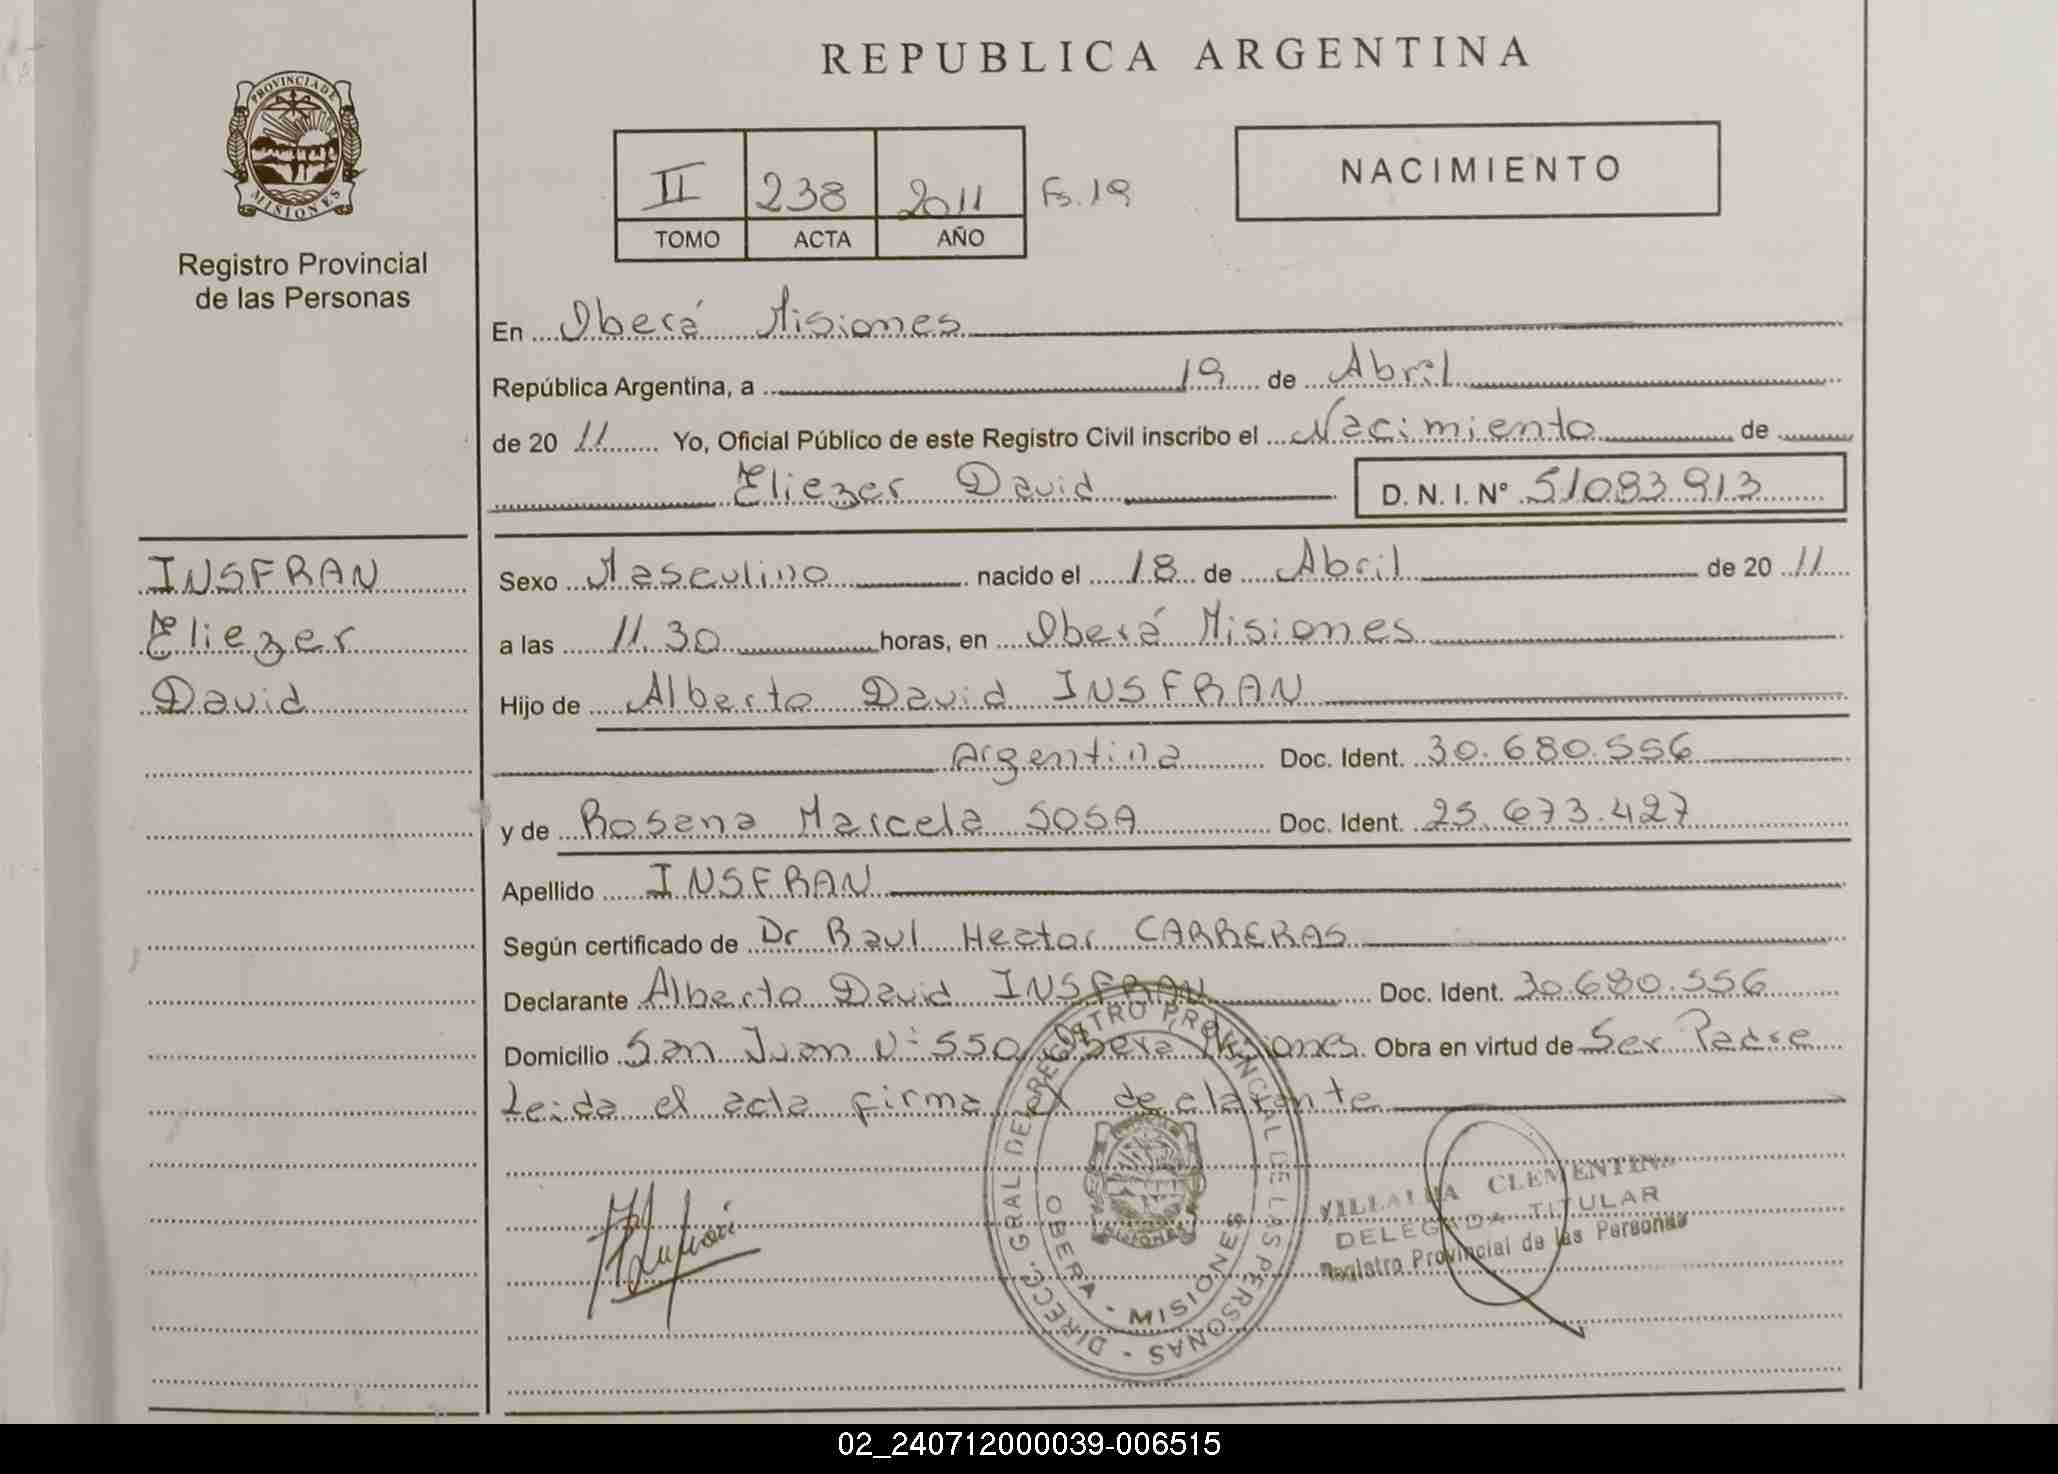 REPUBLICA ARGENTINA
PROVINCIA DE
MISIONES
Registro Provincial
de las Personas
II 238 2011 Fs. 19
TOMO ACTA AÑO
NACIMIENTO
En Oberá Misiones
República Argentina, a 19 de Abril
de 20 11 Yo, Oficial Público de este Registro Civil inscribo el Nacimiento de
Eliezer David D. N. I. Nº 51083913
INSFRAN
Eliezer
David
Sexo Masculino nacido el 18 de Abril de 20 11
a las 11.30 horas, en Oberá Misiones
Hijo de Alberto David INSFRAN
Argentina Doc. Ident. 30.680.556
y de Rosana Marcela SOSA Doc. Ident. 25.673.427
Apellido INSFRAN
Según certificado de Dr Raul Hector CARRERAS
Declarante Alberto David INSFRAN Doc. Ident. 30.680.556
Domicilio San Juan Nº 550 Oberá Misiones Obra en virtud de Ser Padre
Leida el acta firma el declarante
DIRECC. GRAL. DE REGISTRO PROVINCIAL DE LAS PERSONAS -
OBERA - MISIONES
VILLALBA CLEMENTINA
DELEGADA TITULAR
Registro Provincial de las Personas
02_240712000039-006515